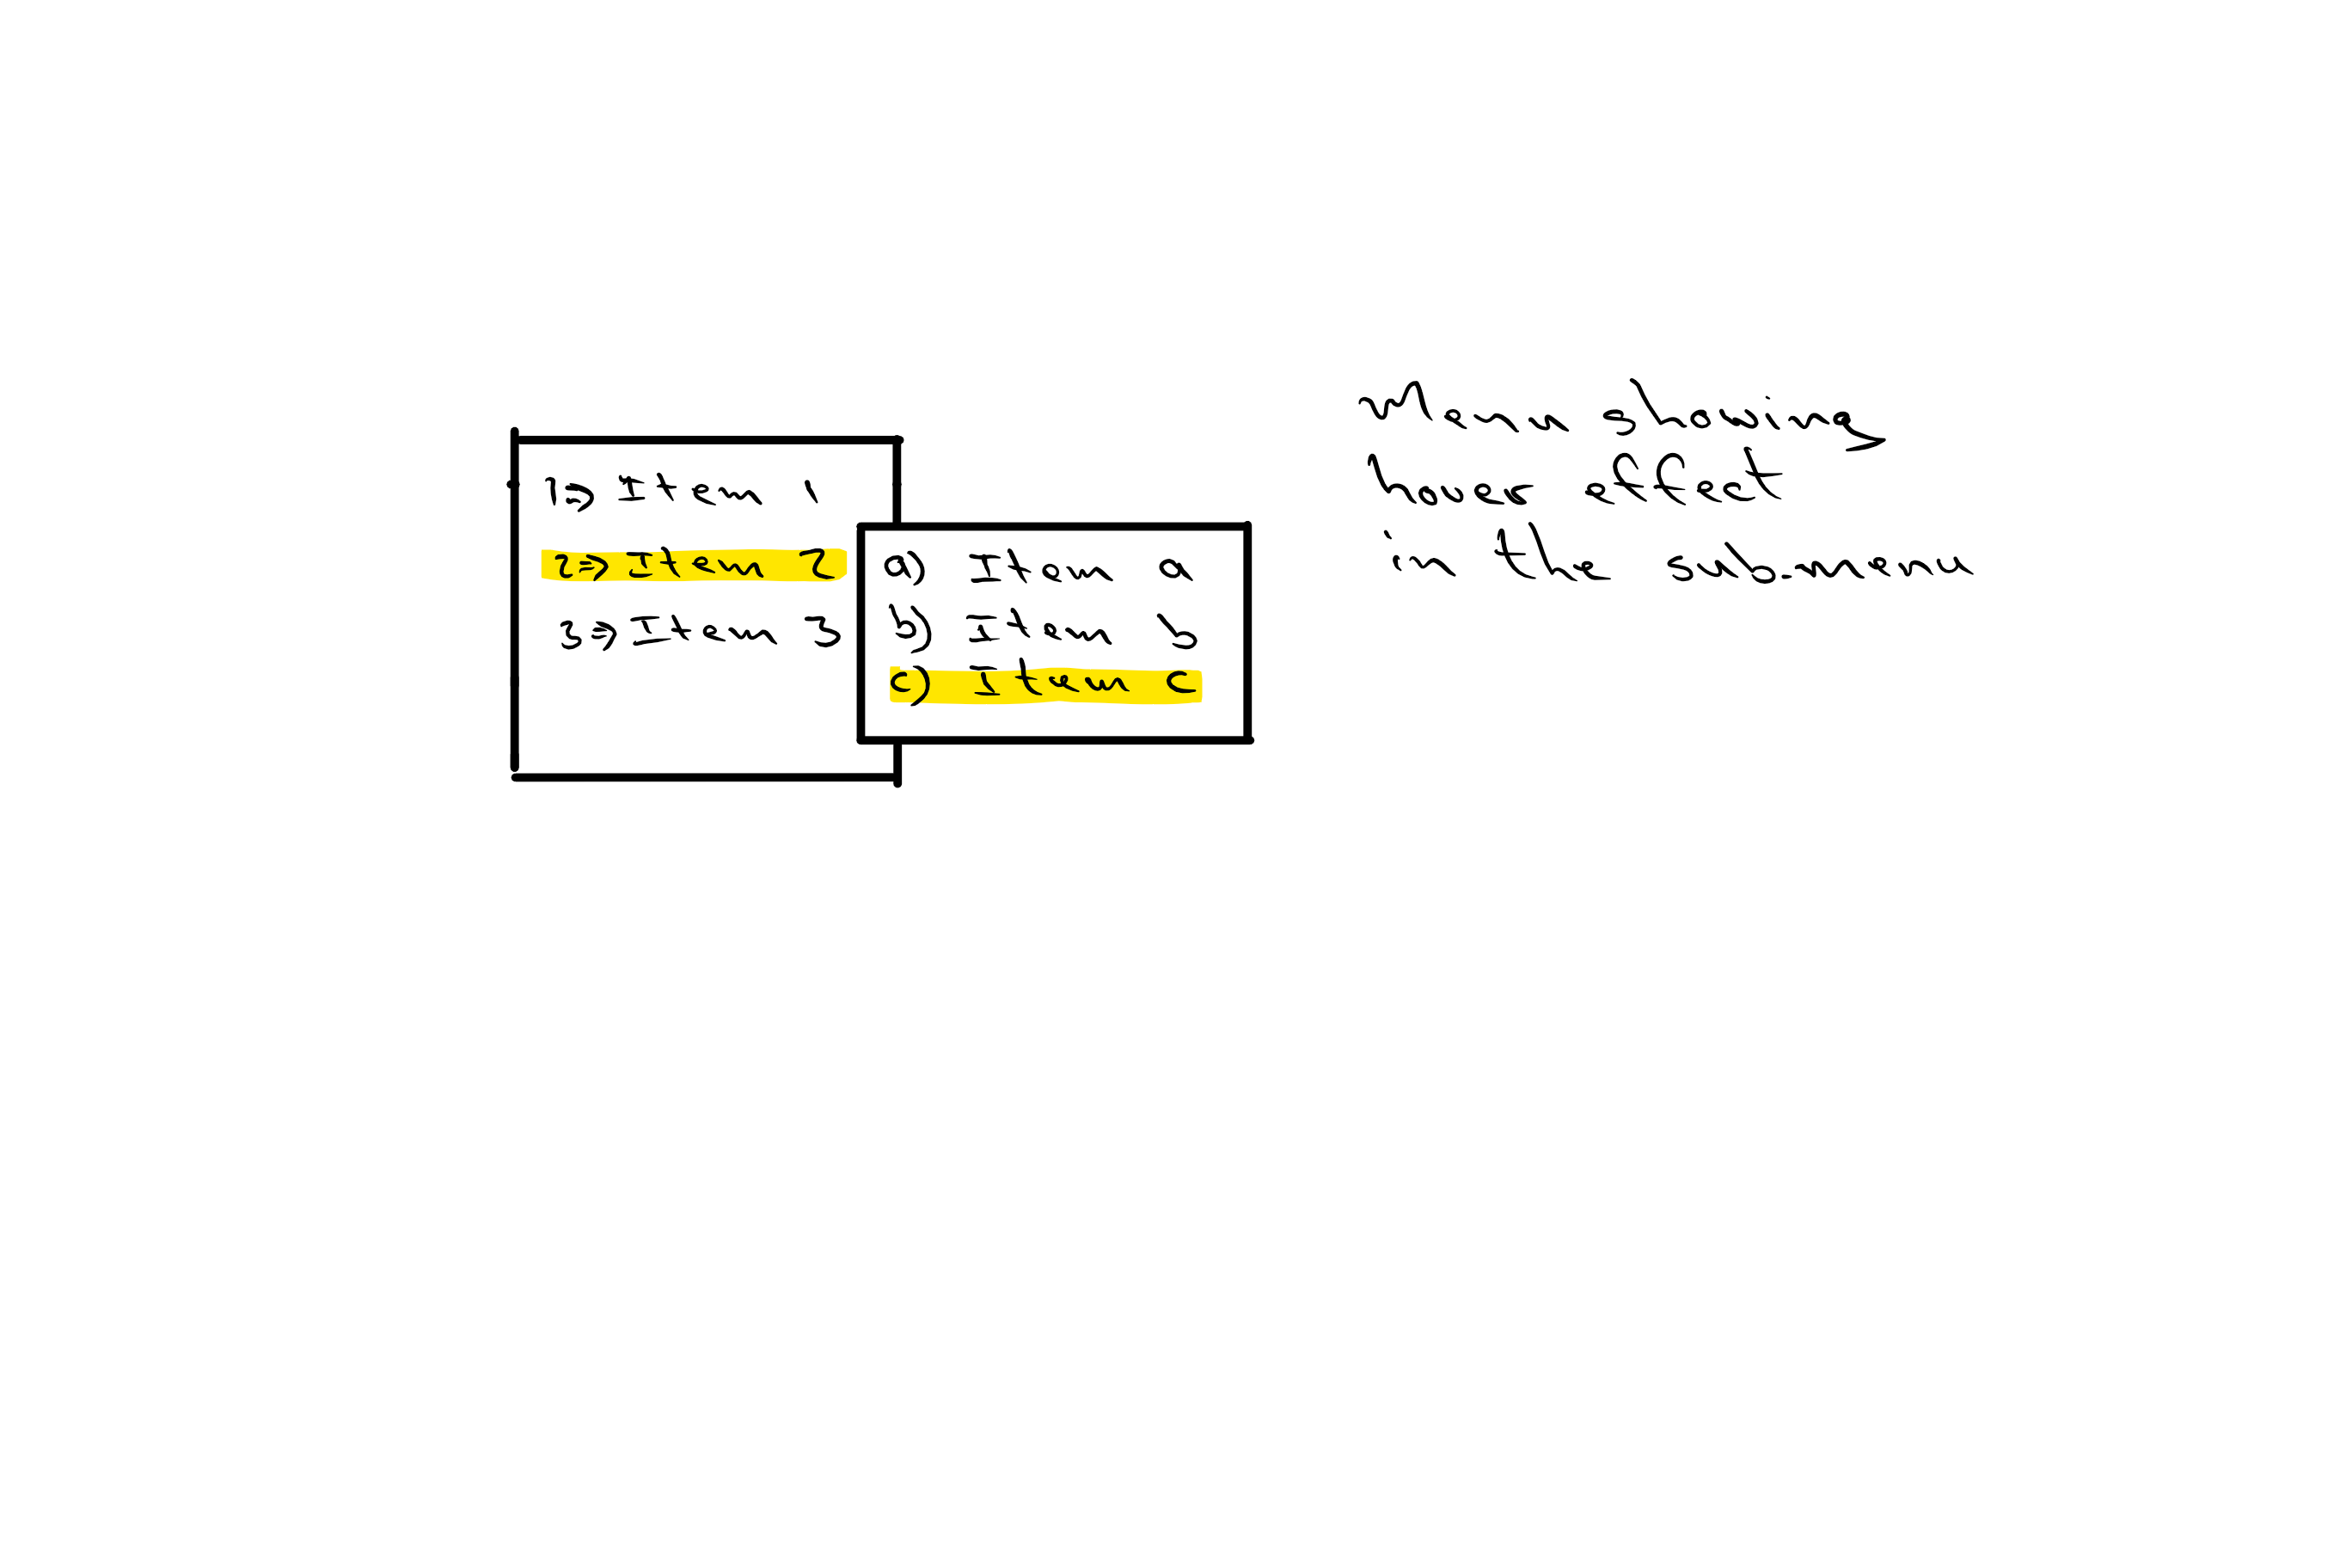 1) Item 1
2) Item 2
3) Item 3
a) Item a
b) Item b
c) Item c
Menu showing
hover effect
in the sub-menu